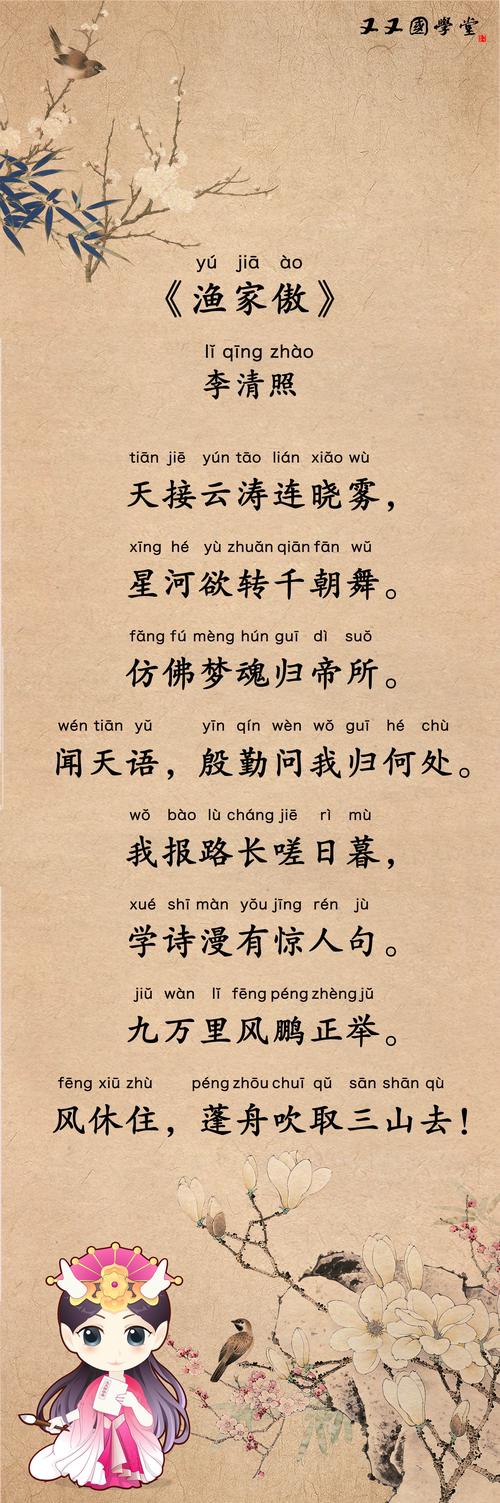 又又國學堂
yú jiā ào
《渔家傲》
lǐ qīng zhào
李清照
tiān jiē yún tāo lián xiǎo wù
天接云涛连晓雾，
xīng hé yù zhuǎn qiān fān wǔ
星河欲转千朝舞。
fǎng fú mèng hún guī dì suǒ
仿佛梦魂归帝所。
wén tiān yǔ yīn qín wèn wǒ guī hé chù
闻天语，殷勤问我归何处。
wǒ bào lù cháng jiē rì mù
我报路长嗟日暮，
xué shī màn yǒu jīng rén jù
学诗漫有惊人句。
jiǔ wàn lǐ fēng péng zhèng jǔ
九万里风鹏正举。
fēng xiū zhù péng zhōu chuī qǔ sān shān qù
风休住，蓬舟吹取三山去！